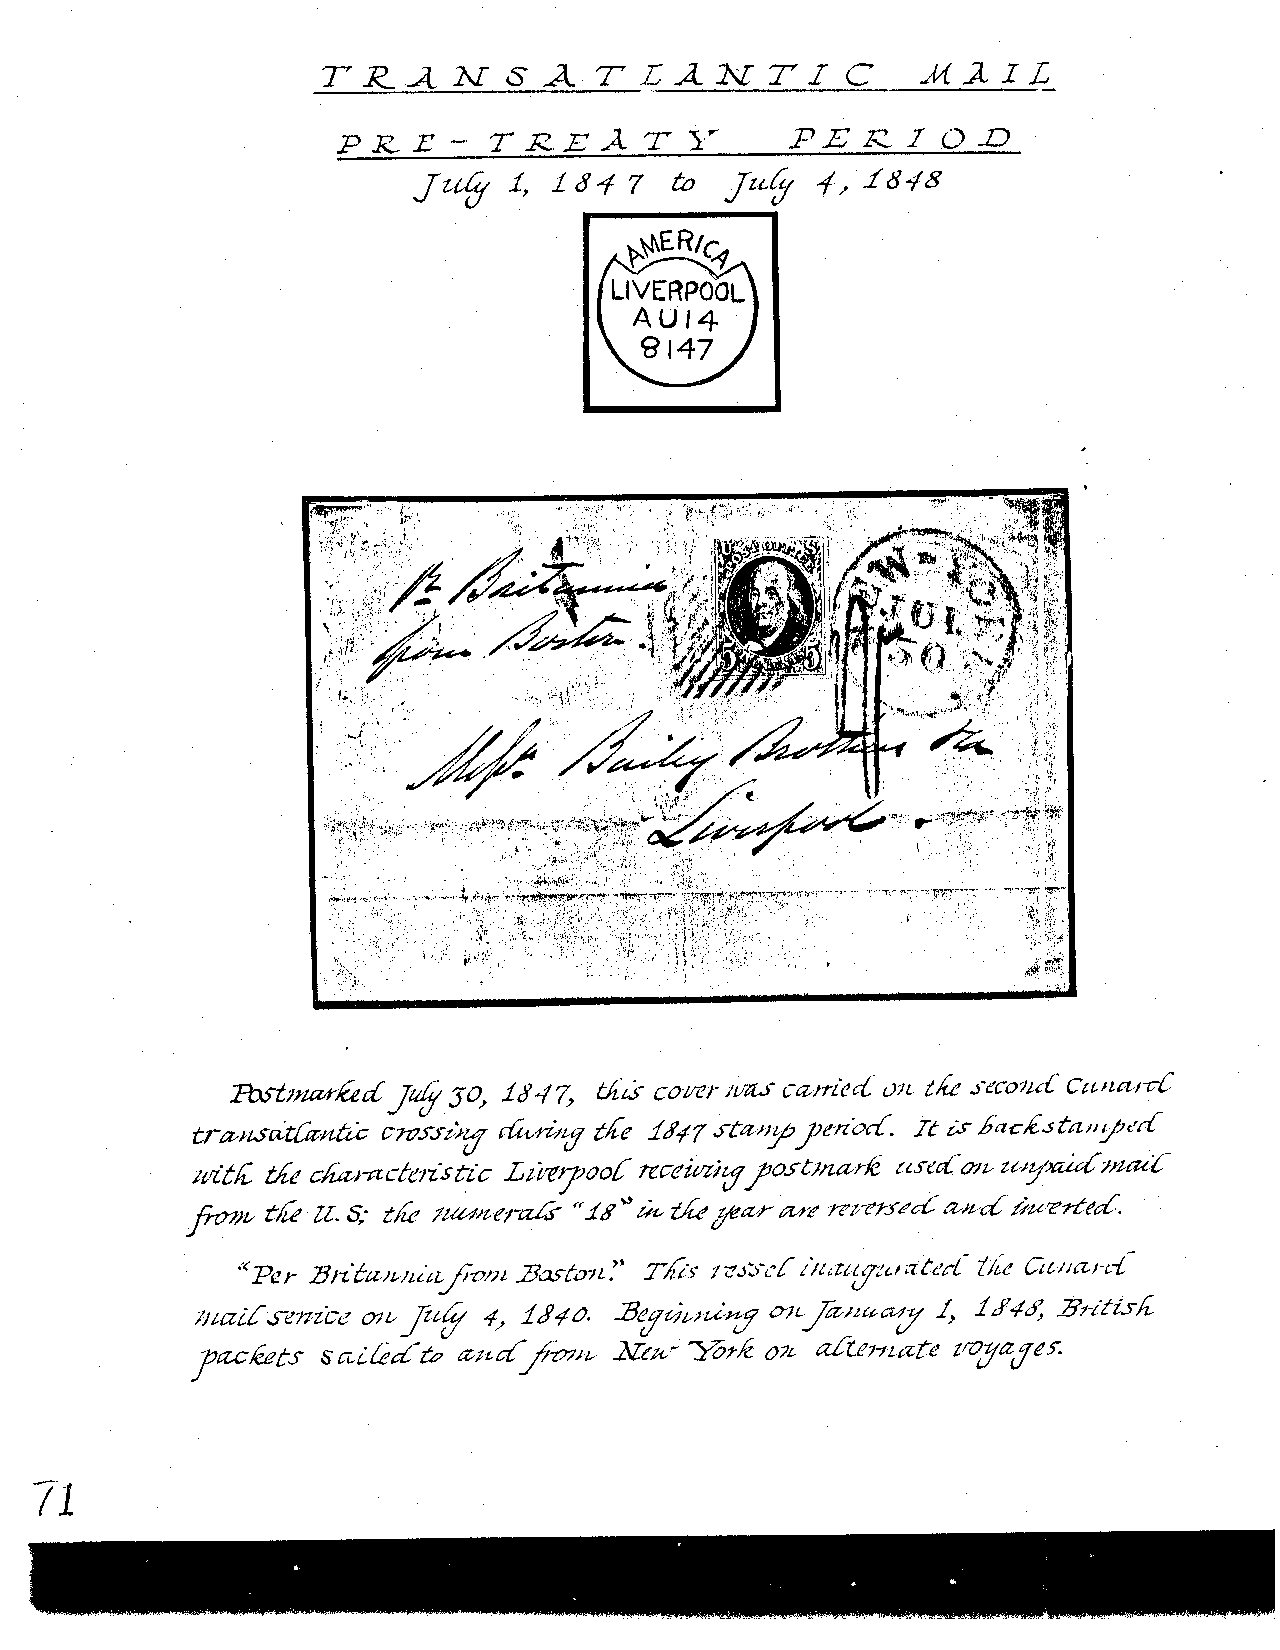 TRANSATLANTIC MAIL
PRE-TREATY PERIOD
July 1, 1847 to July 4, 1848
AMERICA
LIVERPOOL
AU14
8147
Pr Britannia
from Boston.
NEW-YORK
JUL
30
5 5
Messrs. Bailey Brothers & Co
Liverpool.
Postmarked July 30, 1847, this cover was carried on the second Cunard
transatlantic crossing during the 1847 stamp period. It is backstamped
with the characteristic Liverpool receiving postmark used on unpaid mail
from the U.S; the numerals "18" in the year are reversed and inverted.
"Per Britannia from Boston." This vessel inaugurated the Cunard
mail service on July 4, 1840. Beginning on January 1, 1848, British
packets sailed to and from New York on alternate voyages.
71